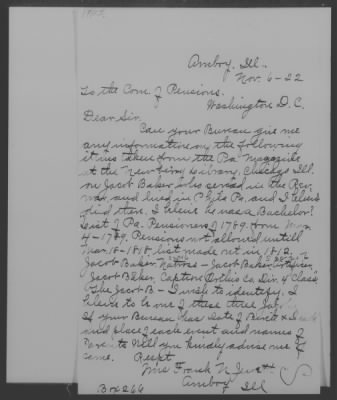 Amboy, Ill.
Nov. 6-22
To the Com. of Pensions.
Washington D.C.
Dear Sir.
Can your Bureau give me
any information on the following
it was taken from the Pa Magazine
at the Newberry Library, Chicago Ill.
on Jacob Baker who served in the Rev.
war, and lived in Phila Pa. and I
died there. I believe he was a Bachelor?
List of Pa. Pensioners of 1789. from
4-1789. Pensions not allowed untill
Mar. 18-1818 list made out in 1812.
Jacob Baker, - Jacob Baker
Jacob Baker, Captain Co. Class
The Jacob B - I wish to identify, I
believe to be one of these three
If your Bureau has date of Birth &
and place of each event and names of
will you kindly advise me of
same. Respt
Mrs Frank N
Amboy Ill
Box 266